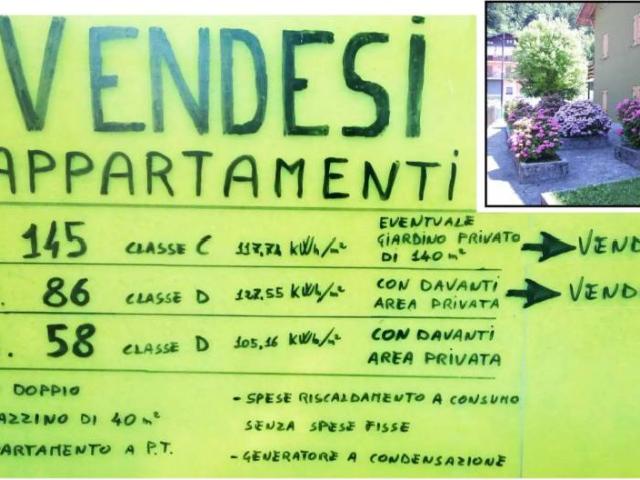 VENDESI
APPARTAMENTI
145 CLASSE C 117,74 kWh/m² EVENTUALE GIARDINO PRIVATO DI 140 m² → VEND
86 CLASSE D 127,55 kWh/m² CON DAVANTI AREA PRIVATA → VEND
58 CLASSE D 105,16 kWh/m² CON DAVANTI AREA PRIVATA
DOPPIO
AZZINO DI 40 m²
ARTAMENTO A P.T.
- SPESE RISCALDAMENTO A CONSUMO
SENZA SPESE FISSE
- GENERATORE A CONDENSAZIONE